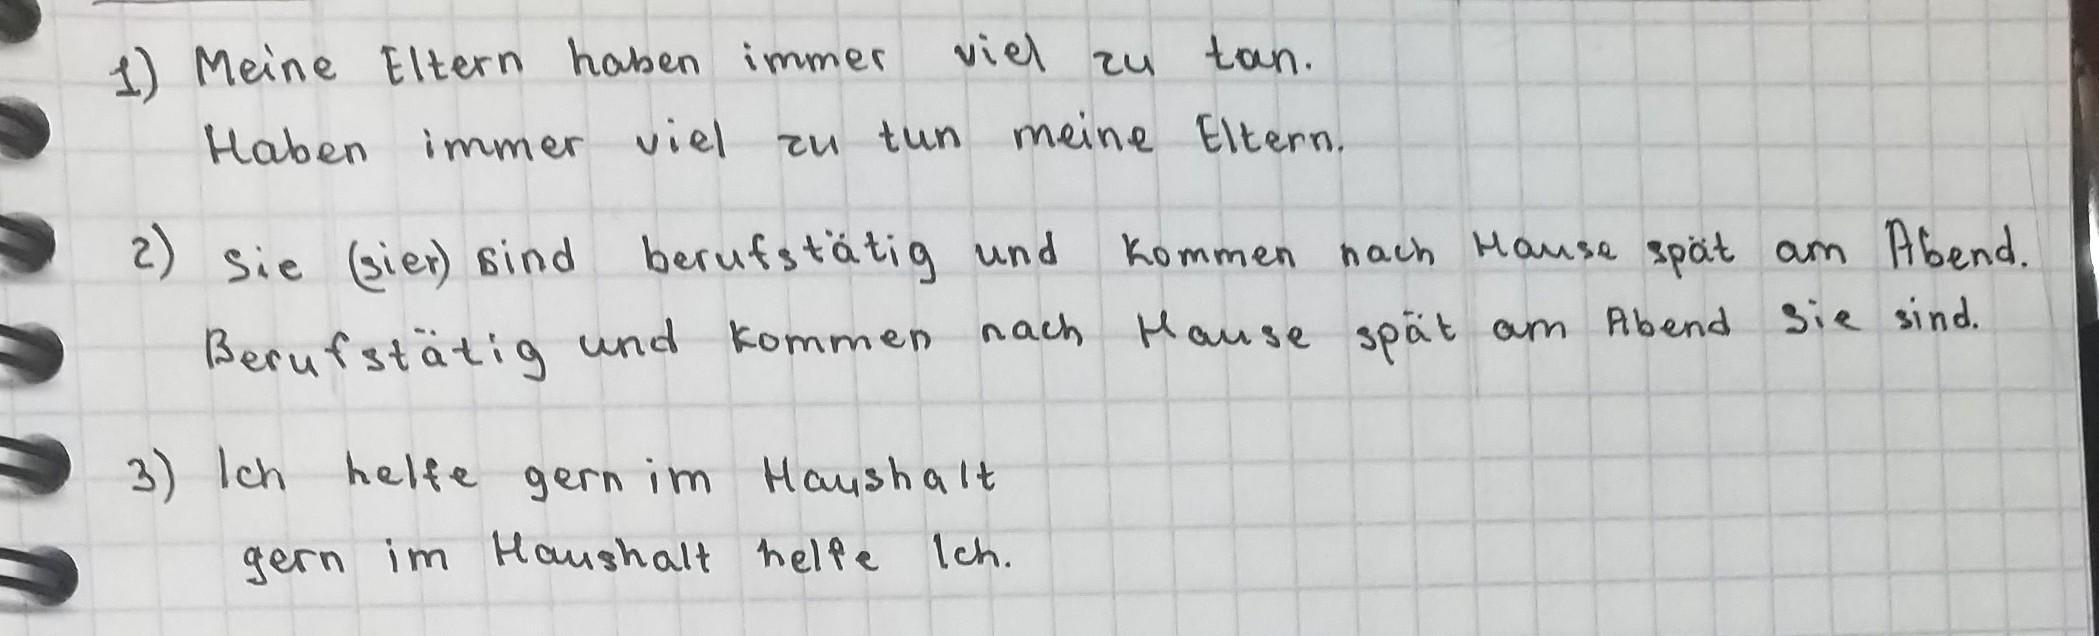 1) Meine Eltern haben immer viel zu tan.
Haben immer viel zu tun meine Eltern.
2) Sie (sier) sind berufstätig und kommen nach Hause spät am Abend.
Berufstätig und kommen nach Hause spät am Abend sie sind.
3) Ich helfe gern im Haushalt
gern im Haushalt helfe Ich.